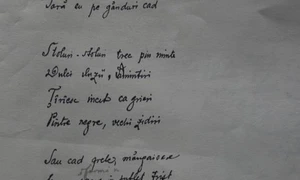 Iară eu pe gânduri cad
Stoluri-stoluri trec prin minte
Dulci iluzii, Amintiri
Țîrîesc încet ca grieri
Printre negre, vechi zidiri
Sau cad grele, mângaioase
suflet trist